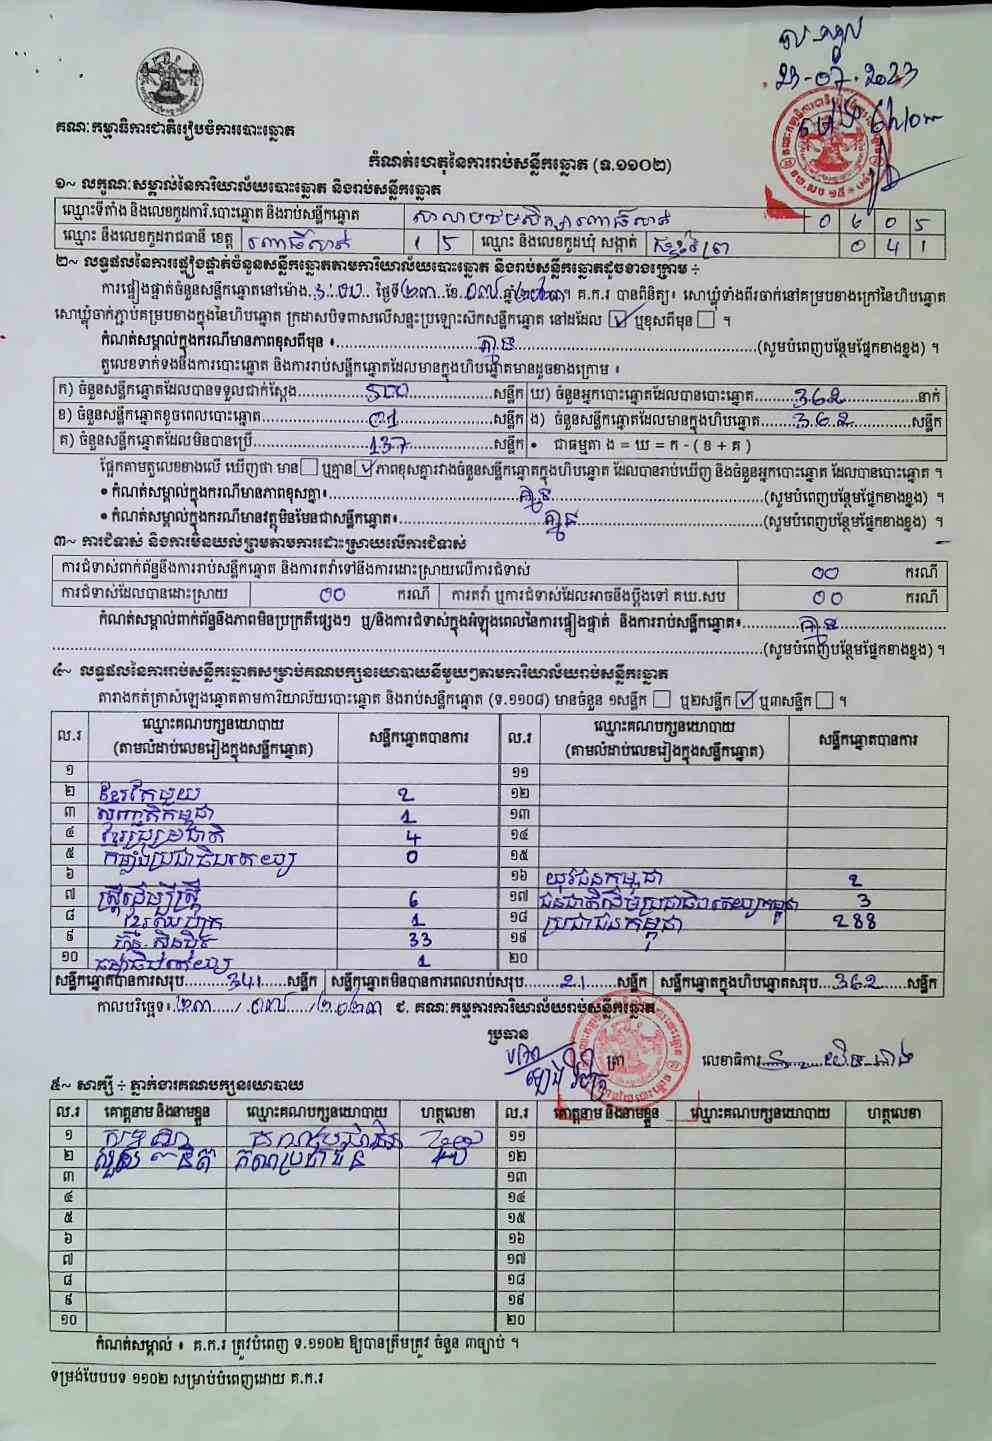 23-07-2023
គណៈកម្មាធិការជាតិរៀបចំការបោះឆ្នោត
កំណត់ហេតុនៃការរាប់សន្លឹកឆ្នោត (ទ.១១០២)
១~ លក្ខណៈសម្គាល់នៃការិយាល័យបោះឆ្នោត និងរាប់សន្លឹកឆ្នោត
ឈ្មោះទីតាំង និងលេខកូដការិ.បោះឆ្នោត និងរាប់សន្លឹកឆ្នោត 0 6 0 5
ឈ្មោះ និងលេខកូដរាជធានី ខេត្ត ពោធិ៍សាត់ 1 5 ឈ្មោះ និងលេខកូដឃុំ សង្កាត់ 0 4 1
២~ លទ្ធផលនៃការផ្ទៀងផ្ទាត់ចំនួនសន្លឹកឆ្នោតតាមការិយាល័យបោះឆ្នោត និងរាប់សន្លឹកឆ្នោតដូចខាងក្រោម ÷
ការផ្ទៀងផ្ទាត់ចំនួនសន្លឹកឆ្នោតនៅម៉ោង 3:00 ថ្ងៃទី ២៣ ខែ ០៧ ឆ្នាំ ២០២៣ ។ គ.ក.រ បានពិនិត្យ៖ សោឃ្លុំទាំងពីរចាក់នៅគម្របខាងក្រៅនៃហិបឆ្នោត
សោឃ្លុំចាក់ភ្ជាប់គម្របខាងក្នុងនៃហិបឆ្នោត ក្រដាសបិទពាសលើសន្ទះប្រឡោះស៊កសន្លឹកឆ្នោត នៅដដែល ☑ ឬខុសពីមុន ☐ ។
កំណត់សម្គាល់ក្នុងករណីមានភាពខុសពីមុន ៖ គ្មាន (សូមបំពេញបន្ថែមផ្នែកខាងខ្នង) ។
តួលេខទាក់ទងនឹងការបោះឆ្នោត និងការរាប់សន្លឹកឆ្នោតដែលមានក្នុងហិបឆ្នោតមានដូចខាងក្រោម ៖
ក) ចំនួនសន្លឹកឆ្នោតដែលបានទទួលជាក់ស្តែង 500 សន្លឹក ឃ) ចំនួនអ្នកបោះឆ្នោតដែលបានបោះឆ្នោត 362 នាក់
ខ) ចំនួនសន្លឹកឆ្នោតខូចពេលបោះឆ្នោត 01 សន្លឹក ង) ចំនួនសន្លឹកឆ្នោតដែលមានក្នុងហិបឆ្នោត 362 សន្លឹក
គ) ចំនួនសន្លឹកឆ្នោតដែលមិនបានប្រើ 137 សន្លឹក • ជាធម្មតា ង = ឃ = ក - ( ខ + គ )
ផ្អែកតាមតួលេខខាងលើ ឃើញថា មាន ☐ ឬគ្មាន ☑ ភាពខុសគ្នារវាងចំនួនសន្លឹកឆ្នោតក្នុងហិបឆ្នោត ដែលបានរាប់ឃើញ និងចំនួនអ្នកបោះឆ្នោត ដែលបានបោះឆ្នោត ។
• កំណត់សម្គាល់ក្នុងករណីមានភាពខុសគ្នា៖ គ្មាន (សូមបំពេញបន្ថែមផ្នែកខាងខ្នង) ។
• កំណត់សម្គាល់ក្នុងករណីមានវត្ថុមិនមែនជាសន្លឹកឆ្នោត៖ គ្មាន (សូមបំពេញបន្ថែមផ្នែកខាងខ្នង) ។
៣~ ការជំទាស់ និងការមិនយល់ព្រមតាមការដោះស្រាយលើការជំទាស់
ការជំទាស់ពាក់ព័ន្ធនឹងការរាប់សន្លឹកឆ្នោត និងការតវ៉ាទៅនឹងការដោះស្រាយលើការជំទាស់ 00 ករណី
ការជំទាស់ដែលបានដោះស្រាយ 00 ករណី ការតវ៉ា ឬការជំទាស់ដែលអាចនឹងប្តឹងទៅ គឃ.សប 00 ករណី
កំណត់សម្គាល់ពាក់ព័ន្ធនឹងភាពមិនប្រក្រតីផ្សេងៗ ឬ/និងការជំទាស់ក្នុងអំឡុងពេលនៃការផ្ទៀងផ្ទាត់ និងការរាប់សន្លឹកឆ្នោត៖ គ្មាន
(សូមបំពេញបន្ថែមផ្នែកខាងខ្នង) ។
៤~ លទ្ធផលនៃការរាប់សន្លឹកឆ្នោតសម្រាប់គណបក្សនយោបាយនីមួយៗតាមការិយាល័យរាប់សន្លឹកឆ្នោត
តារាងកត់ត្រាសំឡេងឆ្នោតតាមការិយាល័យបោះឆ្នោត និងរាប់សន្លឹកឆ្នោត (ទ.១១០៨) មានចំនួន ១សន្លឹក ☐ ឬ២សន្លឹក ☑ ឬ៣សន្លឹក ☐ ។
ល.រ ឈ្មោះគណបក្សនយោបាយ (តាមលំដាប់លេខរៀងក្នុងសន្លឹកឆ្នោត) សន្លឹកឆ្នោតបានការ ល.រ ឈ្មោះគណបក្សនយោបាយ (តាមលំដាប់លេខរៀងក្នុងសន្លឹកឆ្នោត) សន្លឹកឆ្នោតបានការ
១ ១១
២ ខ្មែរតែមួយ 2 ១២
៣ សញ្ជាតិកម្ពុជា 1 ១៣
៤ ខ្មែររួបរួមជាតិ 4 ១៤
៥ កម្លាំងប្រជាធិបតេយ្យ 0 ១៥
៦ ១៦ យុវជនកម្ពុជា 2
៧ ស្ត្រីដើម្បីស្ត្រី 6 ១៧ ជនជាតិដើមប្រជាធិបតេយ្យកម្ពុជា 3
៨ 1 ១៨ ប្រជាជនកម្ពុជា 288
៩ ហ៊្វុនស៊ិនប៉ិច 33 ១៩
១០ ធម្មាធិបតេយ្យ 1 ២០
សន្លឹកឆ្នោតបានការសរុប 341 សន្លឹក សន្លឹកឆ្នោតមិនបានការពេលរាប់សរុប 21 សន្លឹក សន្លឹកឆ្នោតក្នុងហិបឆ្នោតសរុប 362 សន្លឹក
កាលបរិច្ឆេទ៖ ២៣ / ០៧ / ២០២៣ ជ. គណៈកម្មការការិយាល័យរាប់សន្លឹកឆ្នោត
ប្រធាន
ត្រា លេខាធិការ
៥~ សាក្សី ÷ ភ្នាក់ងារគណបក្សនយោបាយ
ល.រ គោត្តនាម និងនាមខ្លួន ឈ្មោះគណបក្សនយោបាយ ហត្ថលេខា ល.រ គោត្តនាម និងនាមខ្លួន ឈ្មោះគណបក្សនយោបាយ ហត្ថលេខា
១ ១១
២ គណប្រជាជន ១២
៣ ១៣
៤ ១៤
៥ ១៥
៦ ១៦
៧ ១៧
៨ ១៨
៩ ១៩
១០ ២០
កំណត់សម្គាល់ ៖ គ.ក.រ ត្រូវបំពេញ ទ.១១០២ ឱ្យបានត្រឹមត្រូវ ចំនួន ៣ច្បាប់ ។
ទម្រង់បែបបទ ១១០២ សម្រាប់បំពេញដោយ គ.ក.រ